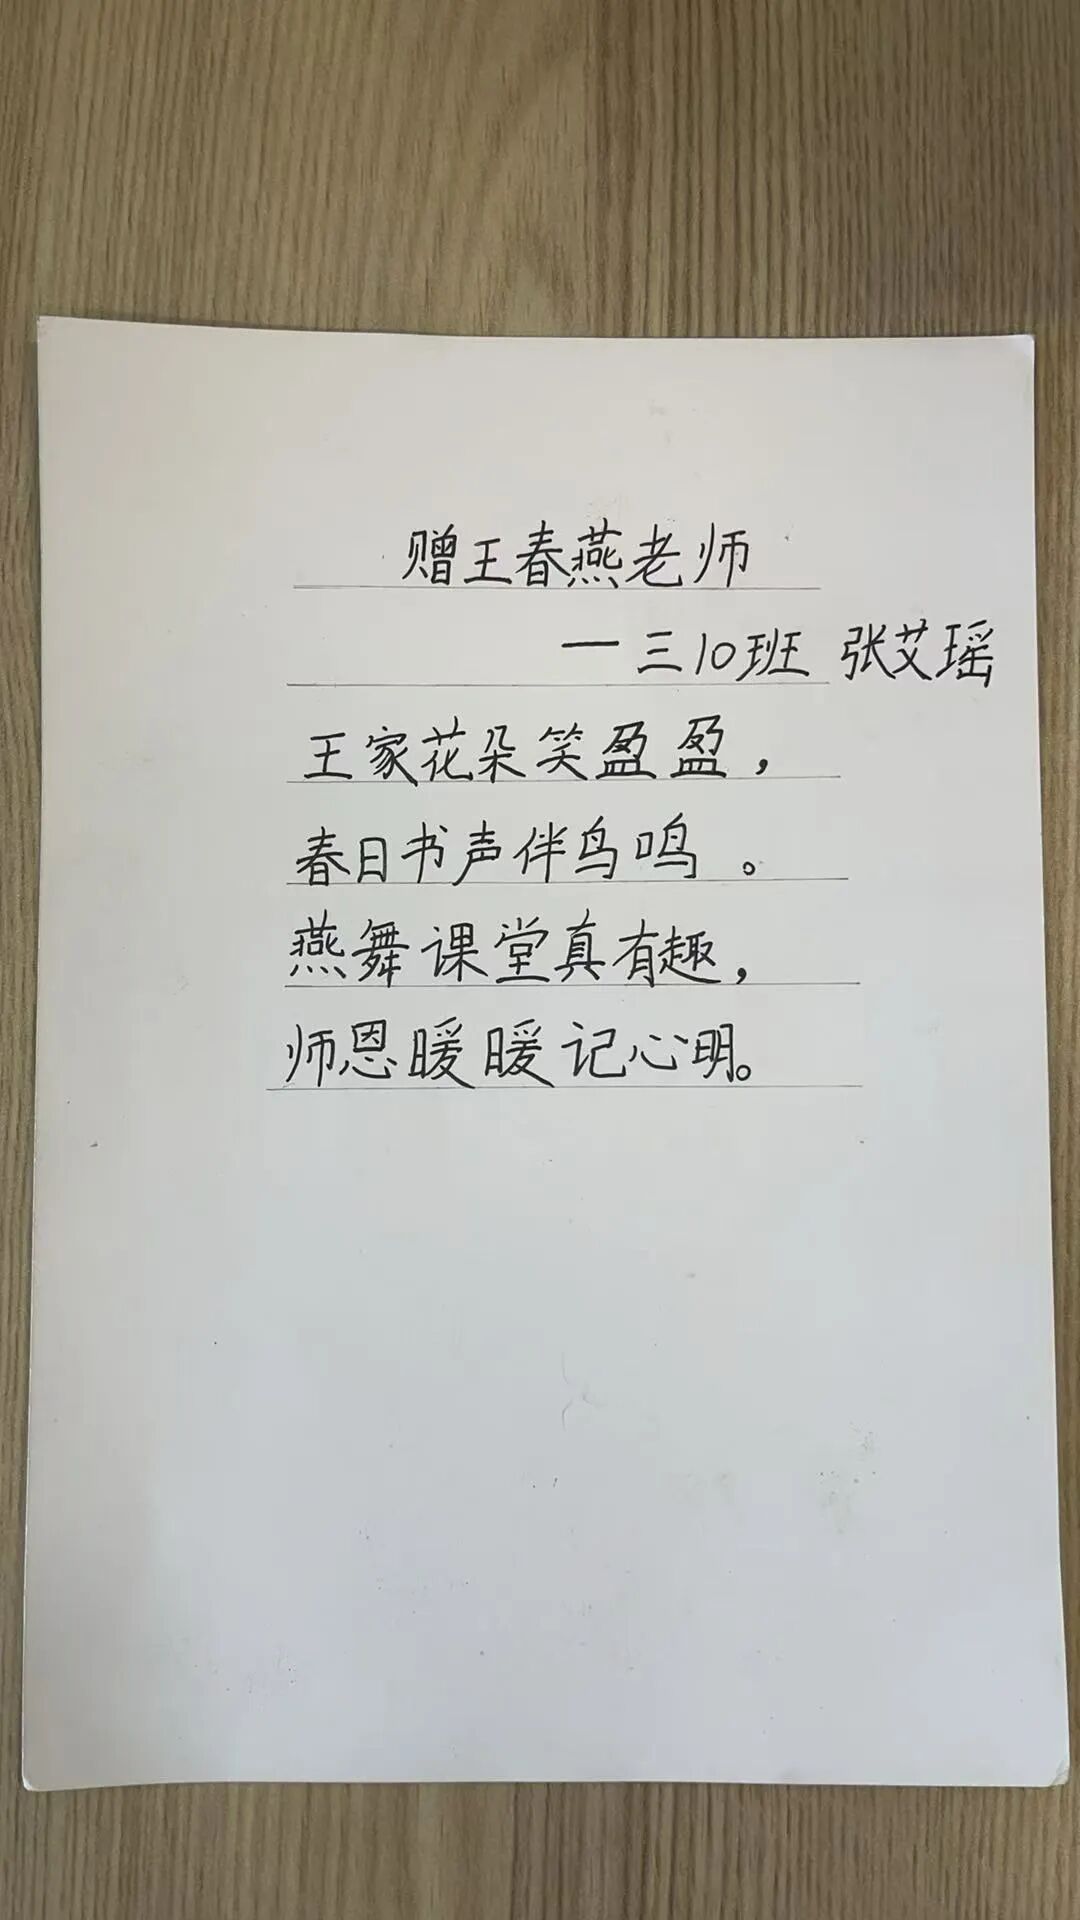 赠王春燕老师
一三10班 张艾瑶
王家花朵笑盈盈，
春日书声伴鸟鸣。
燕舞课堂真有趣，
师恩暖暖记心明。